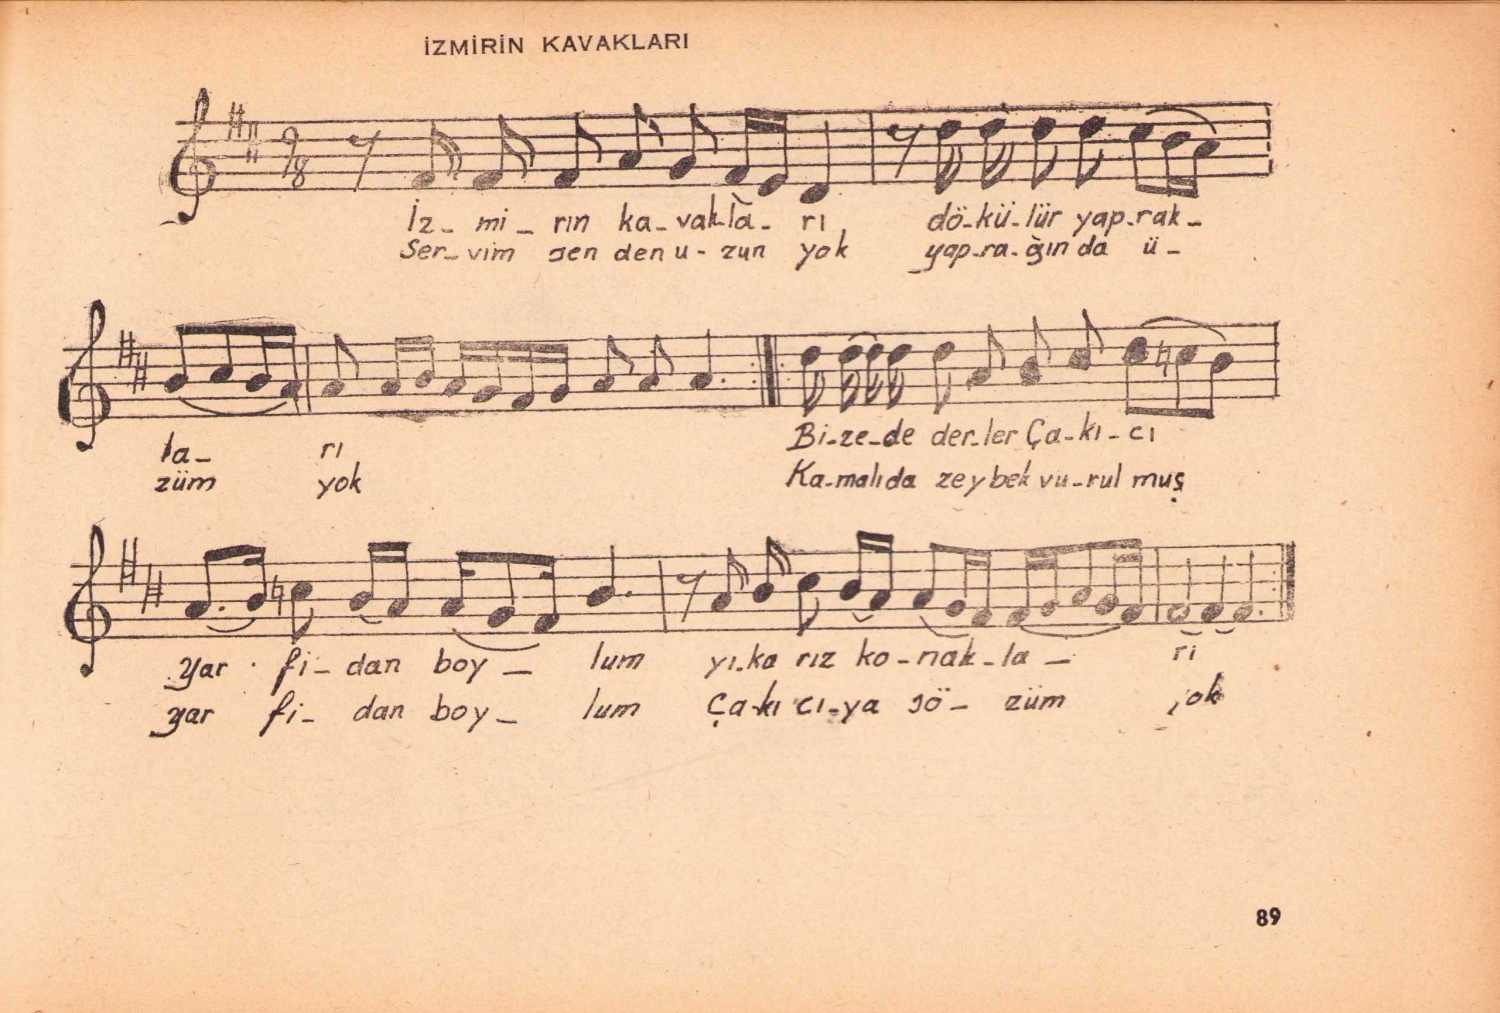 İZMİRİN KAVAKLARI
9/8
İz_ mi_ rın ka_ vak-la_ rı dö-kü-lür yap-rak_
Ser_vim sen den u-zun yok yap-ra-ğın da ü_
la_ rı Bi-ze-de der-ler Ça-kı-cı
züm yok Ka-malıda zeybek vu-rul muş
yar fi_ dan boy_ lum yı-ka rız ko-nak-la_ rı
yar fi_ dan boy_ lum Ça-kı cı-ya sö_ züm
89